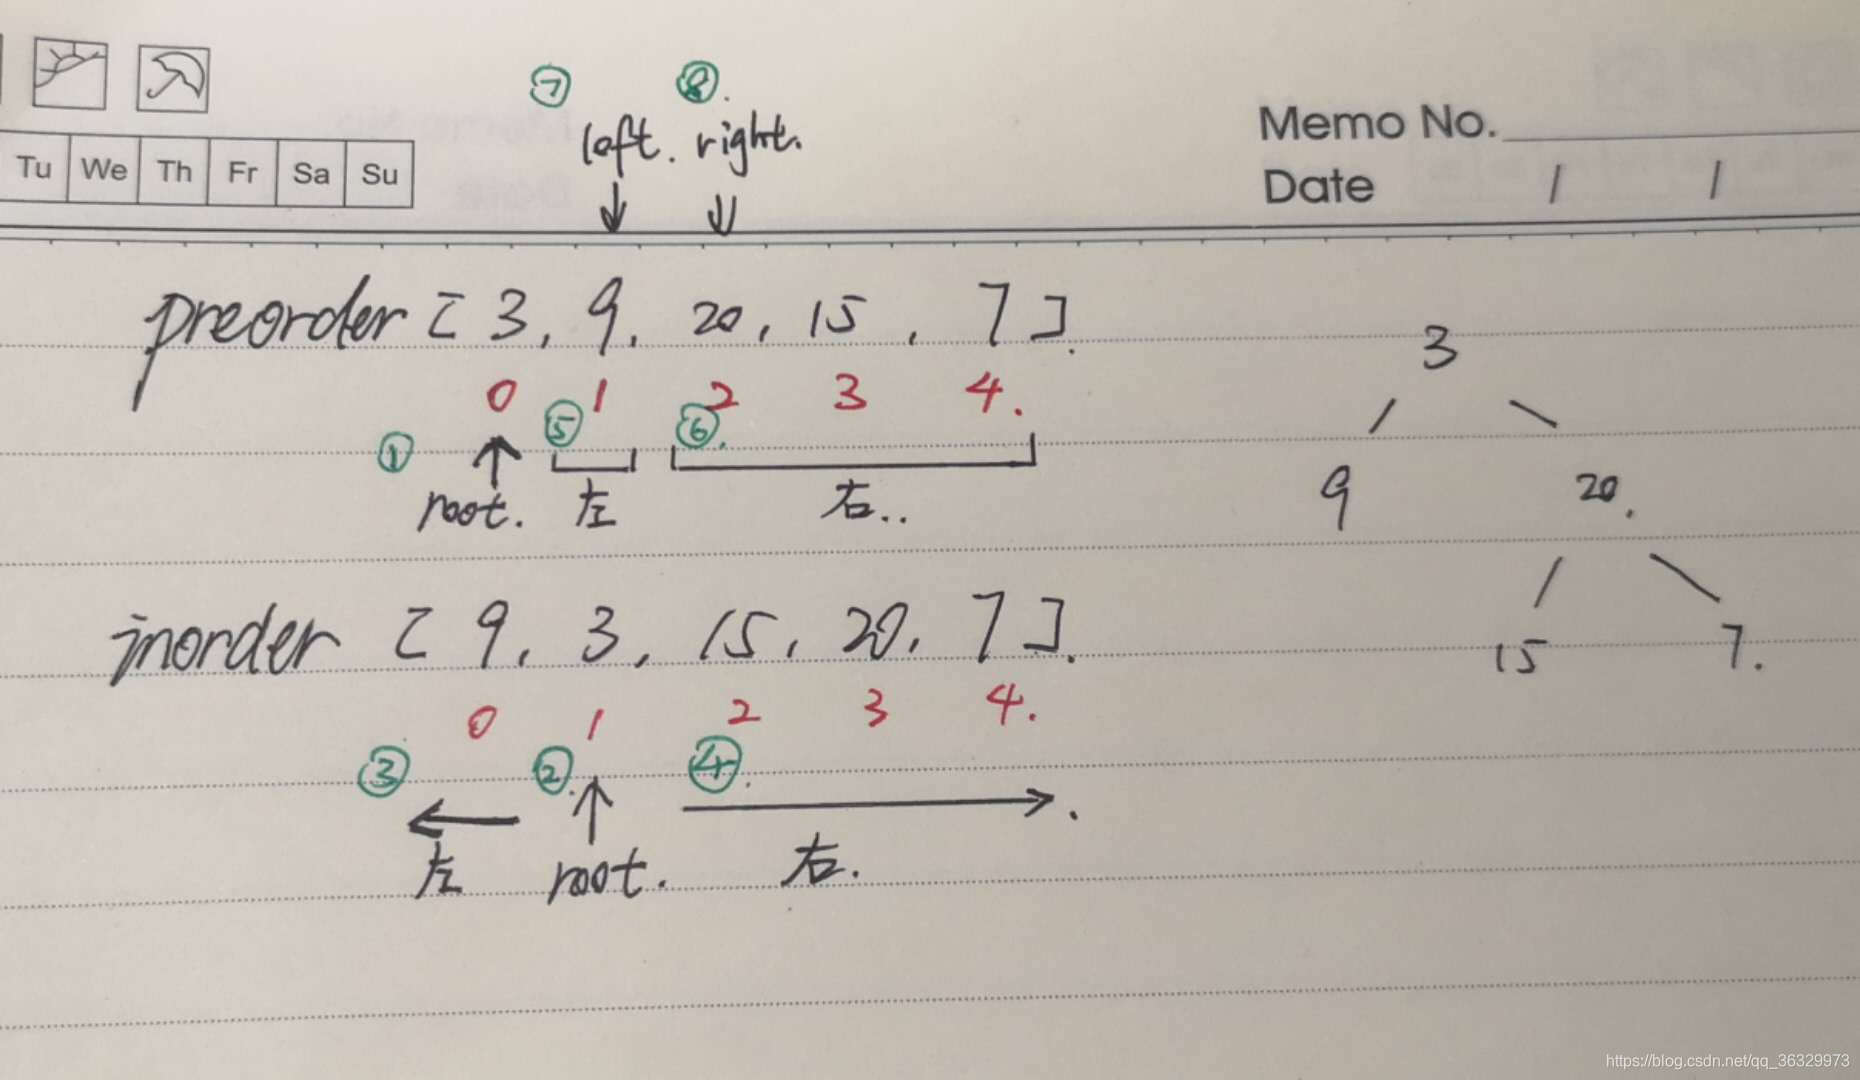 ⑦ ⑧.
left. right.
Memo No.
Tu We Th Fr Sa Su
Date / /
preorder [ 3, 9, 20, 15, 7 ].
0 1 2 3 4.
① ⑤ ⑥.
root. 左 右..
3
9 20.
15 7.
inorder [ 9, 3, 15, 20, 7 ].
0 1 2 3 4.
③ ②. ④.
左 root. 右.
https://blog.csdn.net/qq_36329973